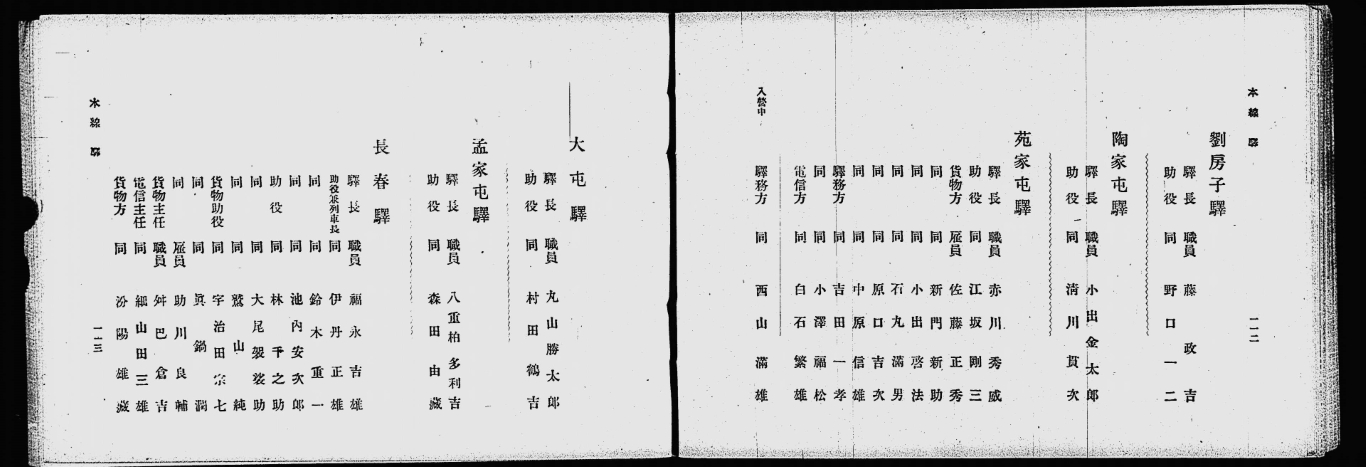 本線驛
一一二
劉房子驛
驛長 職員 藤政吉
助役 同 野口一二
陶家屯驛
驛長 職員 小出金太郎
助役 同 淸川貫次
苑家屯驛
驛長 職員 赤川秀威
助役 同 江坂剛三
貨物方 雇員 佐藤正秀
同 同 新門新助
同 同 小出啓法
同 同 石丸滿男
同 同 原口吉次
同 同 中原信雄
驛務方 同 吉田一孝
同 同 小澤福松
電信方 同 白石繁雄
入營中 驛務方 同 西山滿雄
大屯驛
驛長 職員 丸山勝太郎
助役 同 村田鶴吉
孟家屯驛
驛長 職員 八重柏多利吉
助役 同 森田由藏
長春驛
驛長 職員 福永吉雄
助役兼列車長 同 伊丹正雄
同 同 鈴木重一
同 同 池內安次郎
助役 同 林千之助
同 同 大尾袈裟助
同 同 鷲山純
貨物助役 同 宇治田宗七
同 同 眞鍋
同 雇員 助川良輔
貨物主任 職員 舛巴倉吉
電信主任 同 細山田三雄
貨物方 同 汾陽雄藏
本線驛
一一三